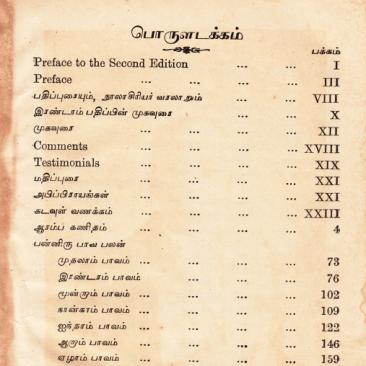 பொருளடக்கம்
பக்கம்
Preface to the Second Edition ... ... I
Preface ... ... ... ... III
பதிப்புரையும், நூலாசிரியர் வரலாறும் ... ... VIII
இரண்டாம் பதிப்பின் முகவுரை ... ... X
முகவுரை ... ... ... ... XII
Comments ... ... ... XVIII
Testimonials ... ... ... XIX
மதிப்புரை ... ... ... XXI
அபிப்பிராயங்கள் ... ... ... XXI
கடவுள் வணக்கம் ... ... ... XXIII
ஆரம்ப கணிதம் ... ... ... 4
பன்னிரு பாவ பலன்
முதலாம் பாவம் ... ... 73
இரண்டாம் பாவம் ... ... 76
மூன்றாம் பாவம் ... ... ... 102
நான்காம் பாவம் ... ... ... 109
ஐந்தாம் பாவம் ... ... ... 122
ஆறாம் பாவம் ... ... ... 146
ஏழாம் பாவம் ... ... ... 159